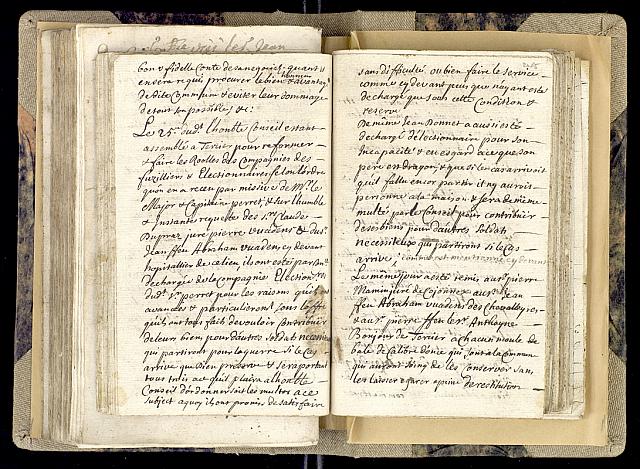 bon & fidelle Conte de sa negociel: quant &
ensere requi, procurer le bien & avantage
honneur
de dite Commun & eviter leur dommage
de tout son possible &c:
Le 25e dud.t honble Conseil estant
assemblé a Tercier pour reformer
& faire les Roolles des Compagnies des
fuzilliers & Electionnaires selon l'ordre
qu'on a receu par missive de Mr. le
Major & Capitaine perret, & sur l'humble
& Instante requeste des Srs Claude
Dupraz juré pierre vuadens & du Sr
Jean ffeu Abraham vuadens cy devant
hospitallier de ce lieu ils ont esté par
decharge de la Compagnie Election
dud.t Sr perret pour les raisons qu'ils ont
avancés & particulierement sous l'offre
qu'ils ont tous faits de vouloir Contribuer
de leurs bien pour d'autres soldats necessit
qui partiront pour la guerre si le Cas
arrive que Dieu preserve & sera portent
tous trois ace qu'il plaira a lhonble
Conseil d'ordonner soit les multer ace
subject a quoy ils ont promis de satisfaire
sans difficulté ou bien faire le service
comme cy devant puis que n'ayant esté
decharge que sous cette Condition &
reserve
De mesme Jean Bonnet a aussi esté
dechargé d'Electionnaire pour son
Incapacité & eu esgard ace que son
pere est dragon, & que si le Cas arrive soit
qu'il fallu encor partir il n'y auroit
personne a la maison & sera de mesme
multé par le Conseil pour contribuër
de ses biens pour d'autres soldats
necessiteux qui partiront si le Cas
arrive, comme est mentionné cy devant
Le mesme jour a esté remis au Sr pierre
Mamin juré de Cojonnex au Sr Jean
ffeu Abraham vuadens des Chevalleyres
& au Sr pierre ffeu le Sr Anthoyne
Bonjour de Tercier a chacun moule de
bale de Calibre donce qui sont a la commun
qui auront soing de les Conserver sans
les laisser egarer a peine de restitution